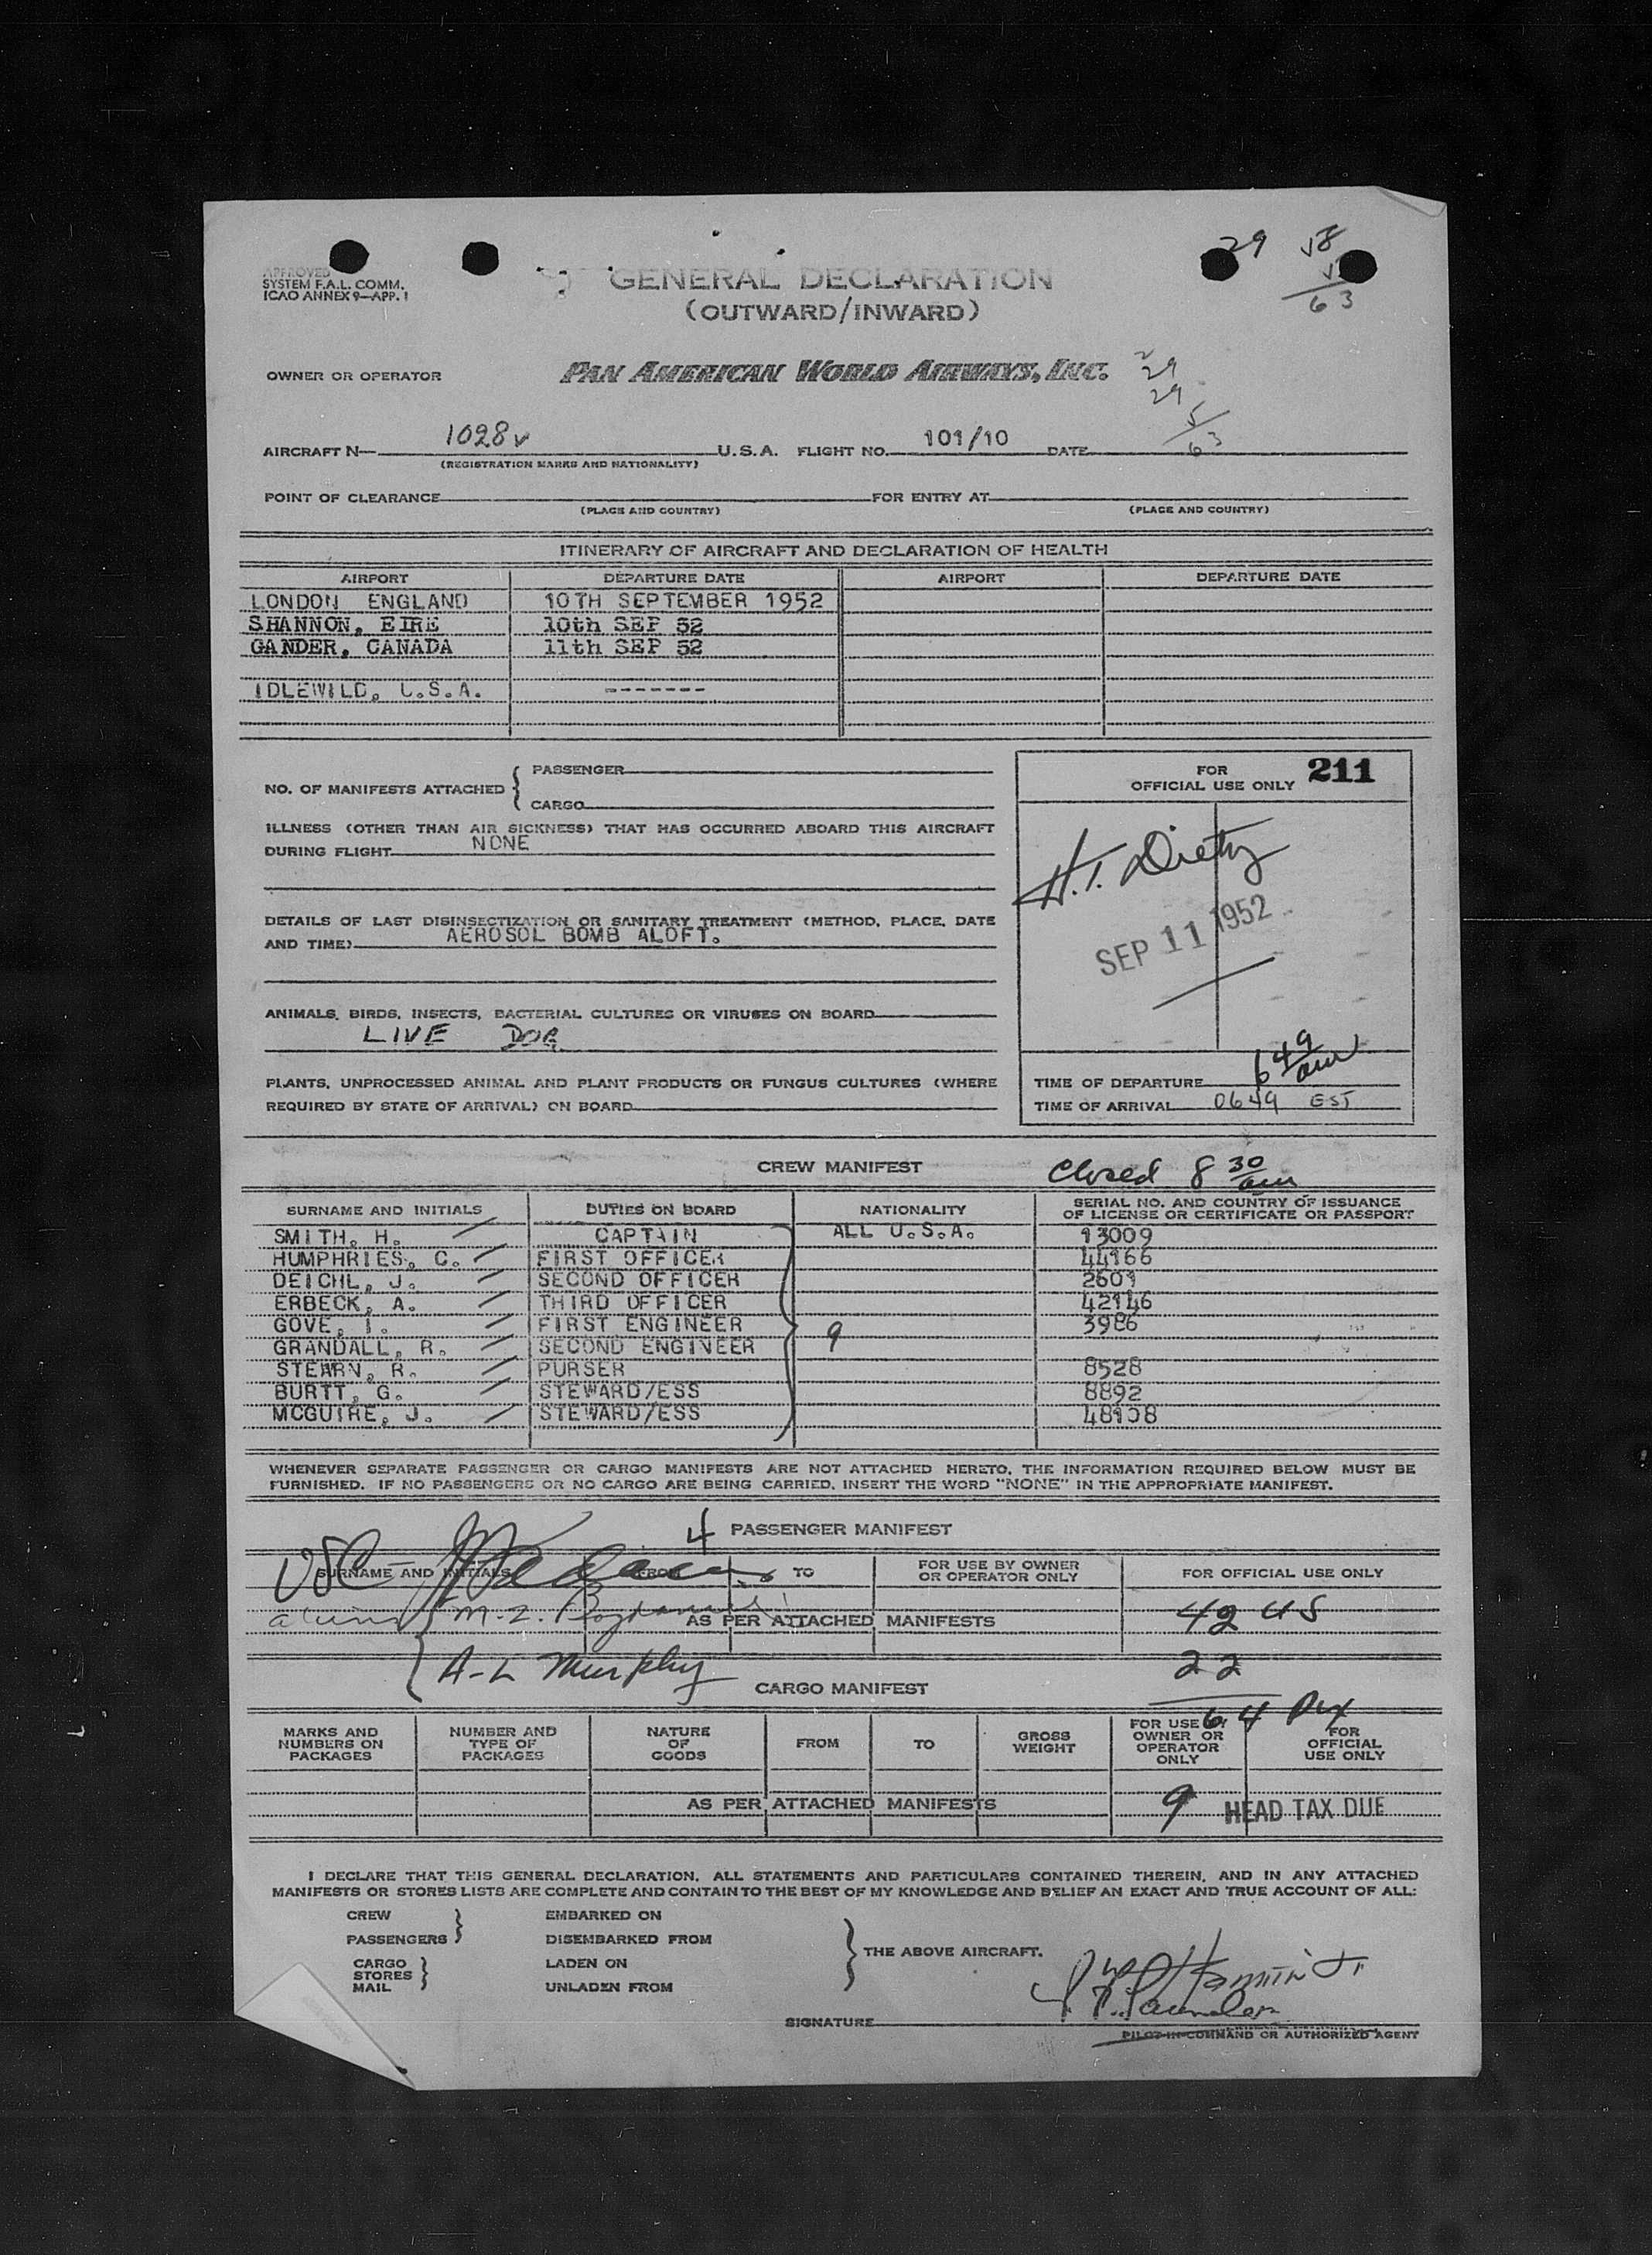 29 58
63
APPROVED
SYSTEM F.A.L. COMM.
ICAO ANNEX 9—APP. 1
GENERAL DECLARATION
(OUTWARD/INWARD)
OWNER OR OPERATOR PAN AMERICAN WORLD AIRWAYS, INC.
29
29
5
63
AIRCRAFT N— 1028V U.S.A. FLIGHT NO. 101/10 DATE
(REGISTRATION MARKS AND NATIONALITY)
POINT OF CLEARANCE FOR ENTRY AT
(PLACE AND COUNTRY) (PLACE AND COUNTRY)
ITINERARY OF AIRCRAFT AND DECLARATION OF HEALTH
AIRPORT DEPARTURE DATE AIRPORT DEPARTURE DATE
LONDON ENGLAND 10TH SEPTEMBER 1952
SHANNON, EIRE 10th SEP 52
GANDER, CANADA 11th SEP 52
IDLEWILD, U.S.A. -------
NO. OF MANIFESTS ATTACHED { PASSENGER
CARGO
FOR
OFFICIAL USE ONLY 211
ILLNESS (OTHER THAN AIR SICKNESS) THAT HAS OCCURRED ABOARD THIS AIRCRAFT
DURING FLIGHT NONE
H.T. Dietz
SEP 11 1952
DETAILS OF LAST DISINSECTIZATION OR SANITARY TREATMENT (METHOD, PLACE, DATE
AND TIME) AEROSOL BOMB ALOFT.
ANIMALS, BIRDS, INSECTS, BACTERIAL CULTURES OR VIRUSES ON BOARD
LIVE DOG
PLANTS, UNPROCESSED ANIMAL AND PLANT PRODUCTS OR FUNGUS CULTURES (WHERE
REQUIRED BY STATE OF ARRIVAL) ON BOARD
TIME OF DEPARTURE 6 49 am
TIME OF ARRIVAL 0649 EST
CREW MANIFEST Closed 8 30 am
SURNAME AND INITIALS DUTIES ON BOARD NATIONALITY SERIAL NO. AND COUNTRY OF ISSUANCE
OF LICENSE OR CERTIFICATE OR PASSPORT
SMITH, H. CAPTAIN ALL U.S.A. 13009
HUMPHRIES, C. FIRST OFFICER 44166
DEICHL, J. SECOND OFFICER 2601
ERBECK, A. THIRD OFFICER 42146
GOVE, I. FIRST ENGINEER 9 3986
GRANDALL, R. SECOND ENGINEER
STEARN, R. PURSER 8528
BURTT, G. STEWARD/ESS 8892
MCGUIRE, J. STEWARD/ESS 48108
WHENEVER SEPARATE PASSENGER OR CARGO MANIFESTS ARE NOT ATTACHED HERETO, THE INFORMATION REQUIRED BELOW MUST BE
FURNISHED. IF NO PASSENGERS OR NO CARGO ARE BEING CARRIED, INSERT THE WORD "NONE" IN THE APPROPRIATE MANIFEST.
4 PASSENGER MANIFEST
USC
SURNAME AND INITIALS FROM TO FOR USE BY OWNER
OR OPERATOR ONLY FOR OFFICIAL USE ONLY
aliens M.Z.
AS PER ATTACHED MANIFESTS 42 US
A-L Murphy 22
CARGO MANIFEST
64 Pax
MARKS AND
NUMBERS ON
PACKAGES NUMBER AND
TYPE OF
PACKAGES NATURE
OF
GOODS FROM TO GROSS
WEIGHT FOR USE BY
OWNER OR
OPERATOR
ONLY FOR
OFFICIAL
USE ONLY
AS PER ATTACHED MANIFESTS 9 HEAD TAX DUE
I DECLARE THAT THIS GENERAL DECLARATION, ALL STATEMENTS AND PARTICULARS CONTAINED THEREIN, AND IN ANY ATTACHED
MANIFESTS OR STORES LISTS ARE COMPLETE AND CONTAIN TO THE BEST OF MY KNOWLEDGE AND BELIEF AN EXACT AND TRUE ACCOUNT OF ALL:
CREW EMBARKED ON
PASSENGERS DISEMBARKED FROM
THE ABOVE AIRCRAFT.
CARGO LADEN ON
STORES
MAIL UNLADEN FROM
SIGNATURE
PILOT-IN-COMMAND OR AUTHORIZED AGENT